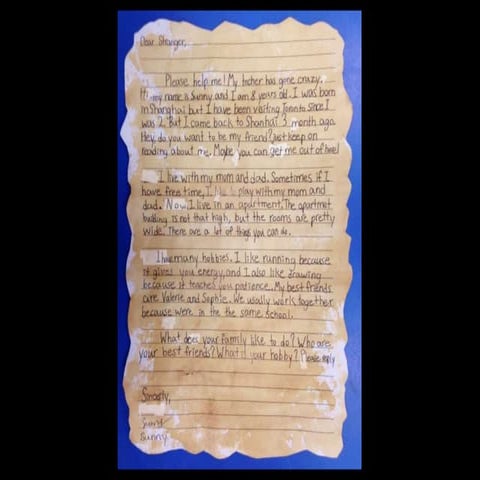 Dear Stranger,
Please help me! My techer has gone crazy.
Hi my name is Sunny and I am 8 years old. I was born
in Shanghai but I have been visiting Toronto since I
was 2. But I came back to Shanhai 3 month ago.
Hey, do you want to be my friend? Just keep on
reading about me. Maybe you can get me out of here!
I live with my mum and dad. Sometimes if I
have free time, I like to play with my mom and
dad. Now I live in an apartment. The apartmet
building is not that high, but the rooms are pretty
wide. There are a lot of things you can do.
I have many hobbies. I like running because
it gives you energy, and I also like drawing
because it teaches you patience. My best friends
are Valerie and Sophie. We usally work together
because were in the the same school.
What does your family like to do? Who are
your best friends? What your hobby? Please reply
Sincerly,
Sunny
Sunny